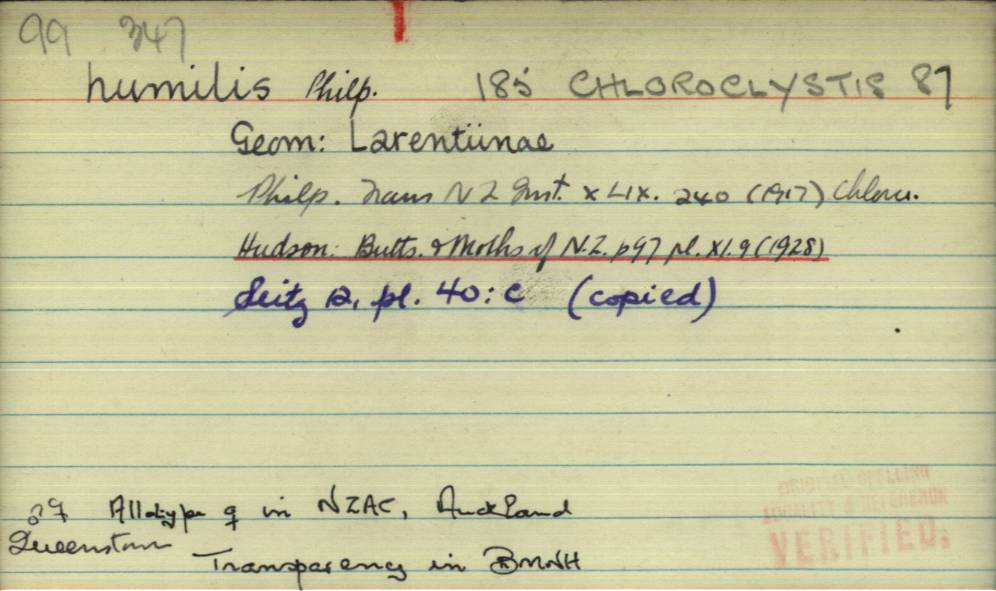 99 347
humilis Philp. 185 CHLOROCLYSTIS 87
Geom: Larentiinae
Philp. Trans N Z Inst. XLIX. 240 (1917) Chloroc.
Hudson: Butts. & Moths of N.Z. p97 pl. XI. 9 (1928)
Seitz 12, pl. 40: c (copied)
♂♀ Allotype ♀ in NZAC, Auckland
Queenstown
Transparency in BMNH
ORIGINAL SPELLING
LOCALITY & REFERENCE
VERIFIED.